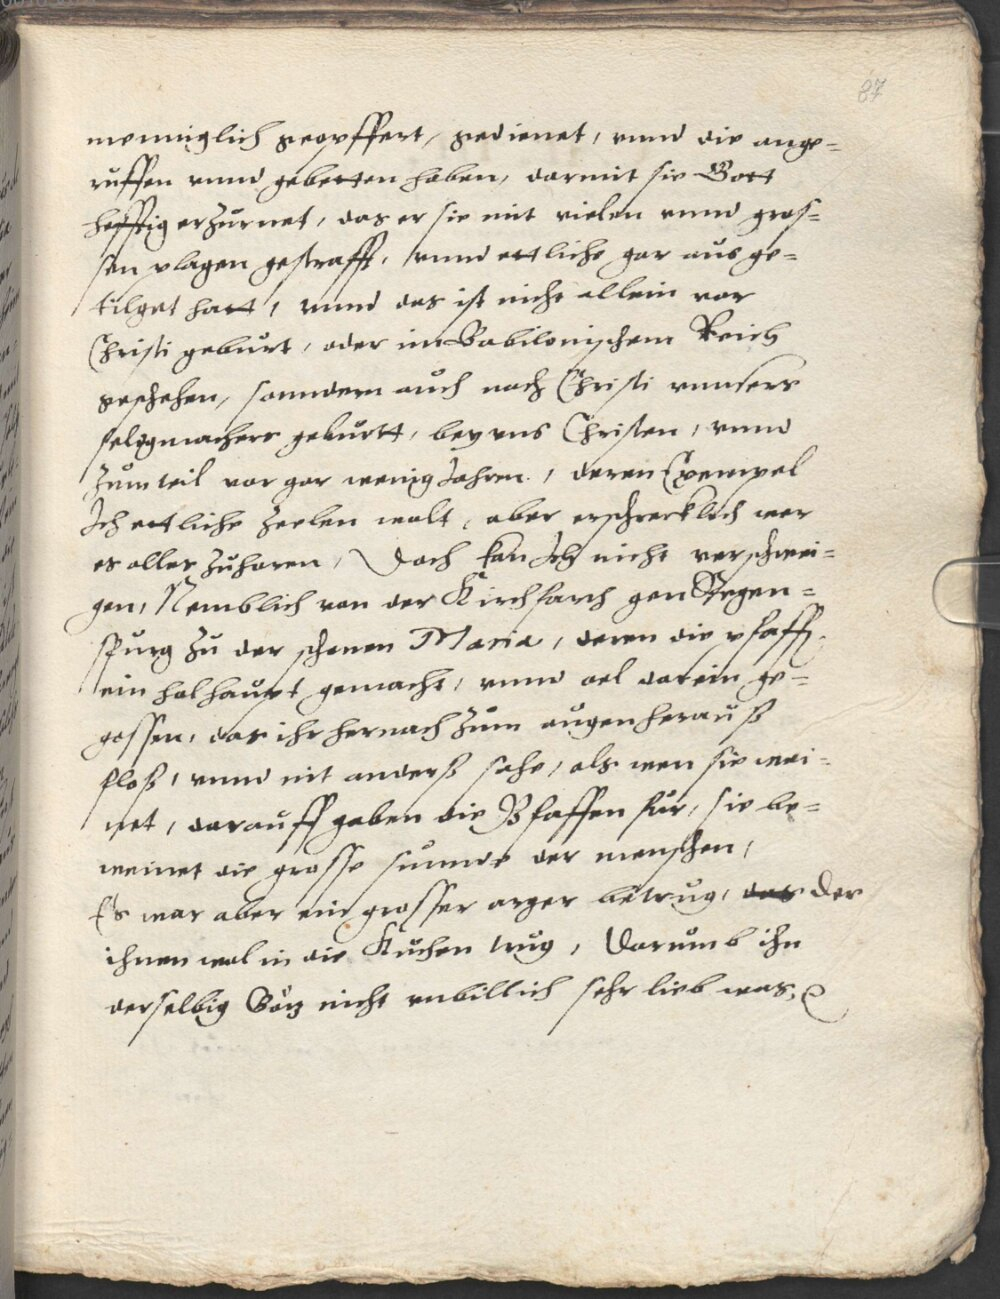 87
menniglich geopffert, gedienet, vnnd die ange-
ruffen vnnd gebetten haben, darmit sie Gott
hefftig erzürnet, das er sie mit vielen vnnd gros-
sen plagen gestrafft, vnnd ettliche gar ausge-
tilget hatt, vnnd das ist nicht allein vor
Christi geburt, oder im Babilonischem Reich
geschehen, sonndern auch nach Christi vnnsers
seligmachers geburtt, bey vns Christen, vnnd
zum teil vor gar wenig Jahren, deren Exempel
Ich ettliche zeelen wolt, aber erschrecklich wer
es alles zuhoren, Doch kan Ich nicht verschwei-
gen, Nemblich von der Kirchfarth gen Regen-
spurg zu der schonen Maria, deren die pfaffen
ein holhaupt gemacht, vnnd oel darein ge-
gossen, das ihr hernach zum augen herauß
floß, vnnd nit anderß sahe, als wen sie wei-
net, darauff gaben die Pfaffen für, sie be-
weinet die grosse sünnde der menschen,
Es war aber ein grosser arger betrug, das der
ihnen wol in die Küchen trug, Darumb ihn
derselbig Götz nicht vnbillich sehr lieb was,